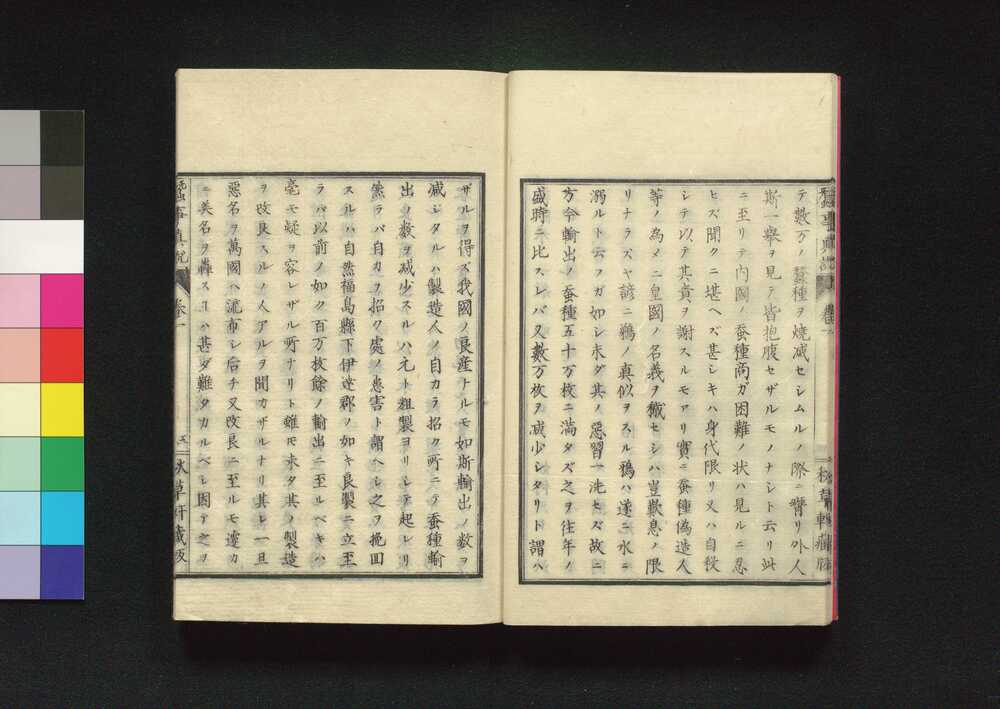 テ數万ノ蚕種ヲ燒减セシムルノ際ニ臀リ外人
斯一擧ヲ見テ皆抱腹セザルモノナシト云リ此
ニ至リテ内國ノ蚕種商ガ困難ノ状ハ見ルニ忍
ヒズ聞クニ堪ヘズ甚シキハ身代限リ又ハ自殺
シテ以テ其責ヲ謝スルモアリ實ニ蚕種偽造人
等ノ為メニ皇國ノ名義ヲ穢セシハ豈歎息ノ限
リナラズヤ諺ニ鵜ノ真似ヲスル鴉ハ遂ニ水ニ
溺ルト云フガ如シ未ダ其ノ惡習一洗セズ故ニ
方今輸出ノ蚕種五十万枚ニ満タズ之ヲ往年ノ
盛時ニ比スレバ又數万枚ヲ减少シタリト謂ハ
ザルヲ得ズ我國ノ良産ナルモ如斯輸出ノ数ヲ
减シタルハ製造人ノ自カラ招ク所ニテ蚕種輸
出ノ数ヲ减少スルハ元ト粗製ヨリシテ起レリ
然ラバ自カラ招ク處ノ患害ト謂ヘシ之ヲ挽回
スルハ自然福島縣下伊達郡ノ如キ良製ニ立至
ラバ以前ノ如ク百万枚餘ノ輸出ニ至ルベキハ
毫モ疑ヲ容レザル所ナリト雖モ未タ其ノ製造
ヲ改良スルノ人アルヲ聞カザルナリ其レ一旦
惡名ヲ萬國ヘ流布シ后チ又改良ニ至ルモ遽カ
ニ美名ヲ轟スコハ甚ダ難タカルベシ因テ之ヲ
蚕事真説 卷一 五 秋草軒藏板